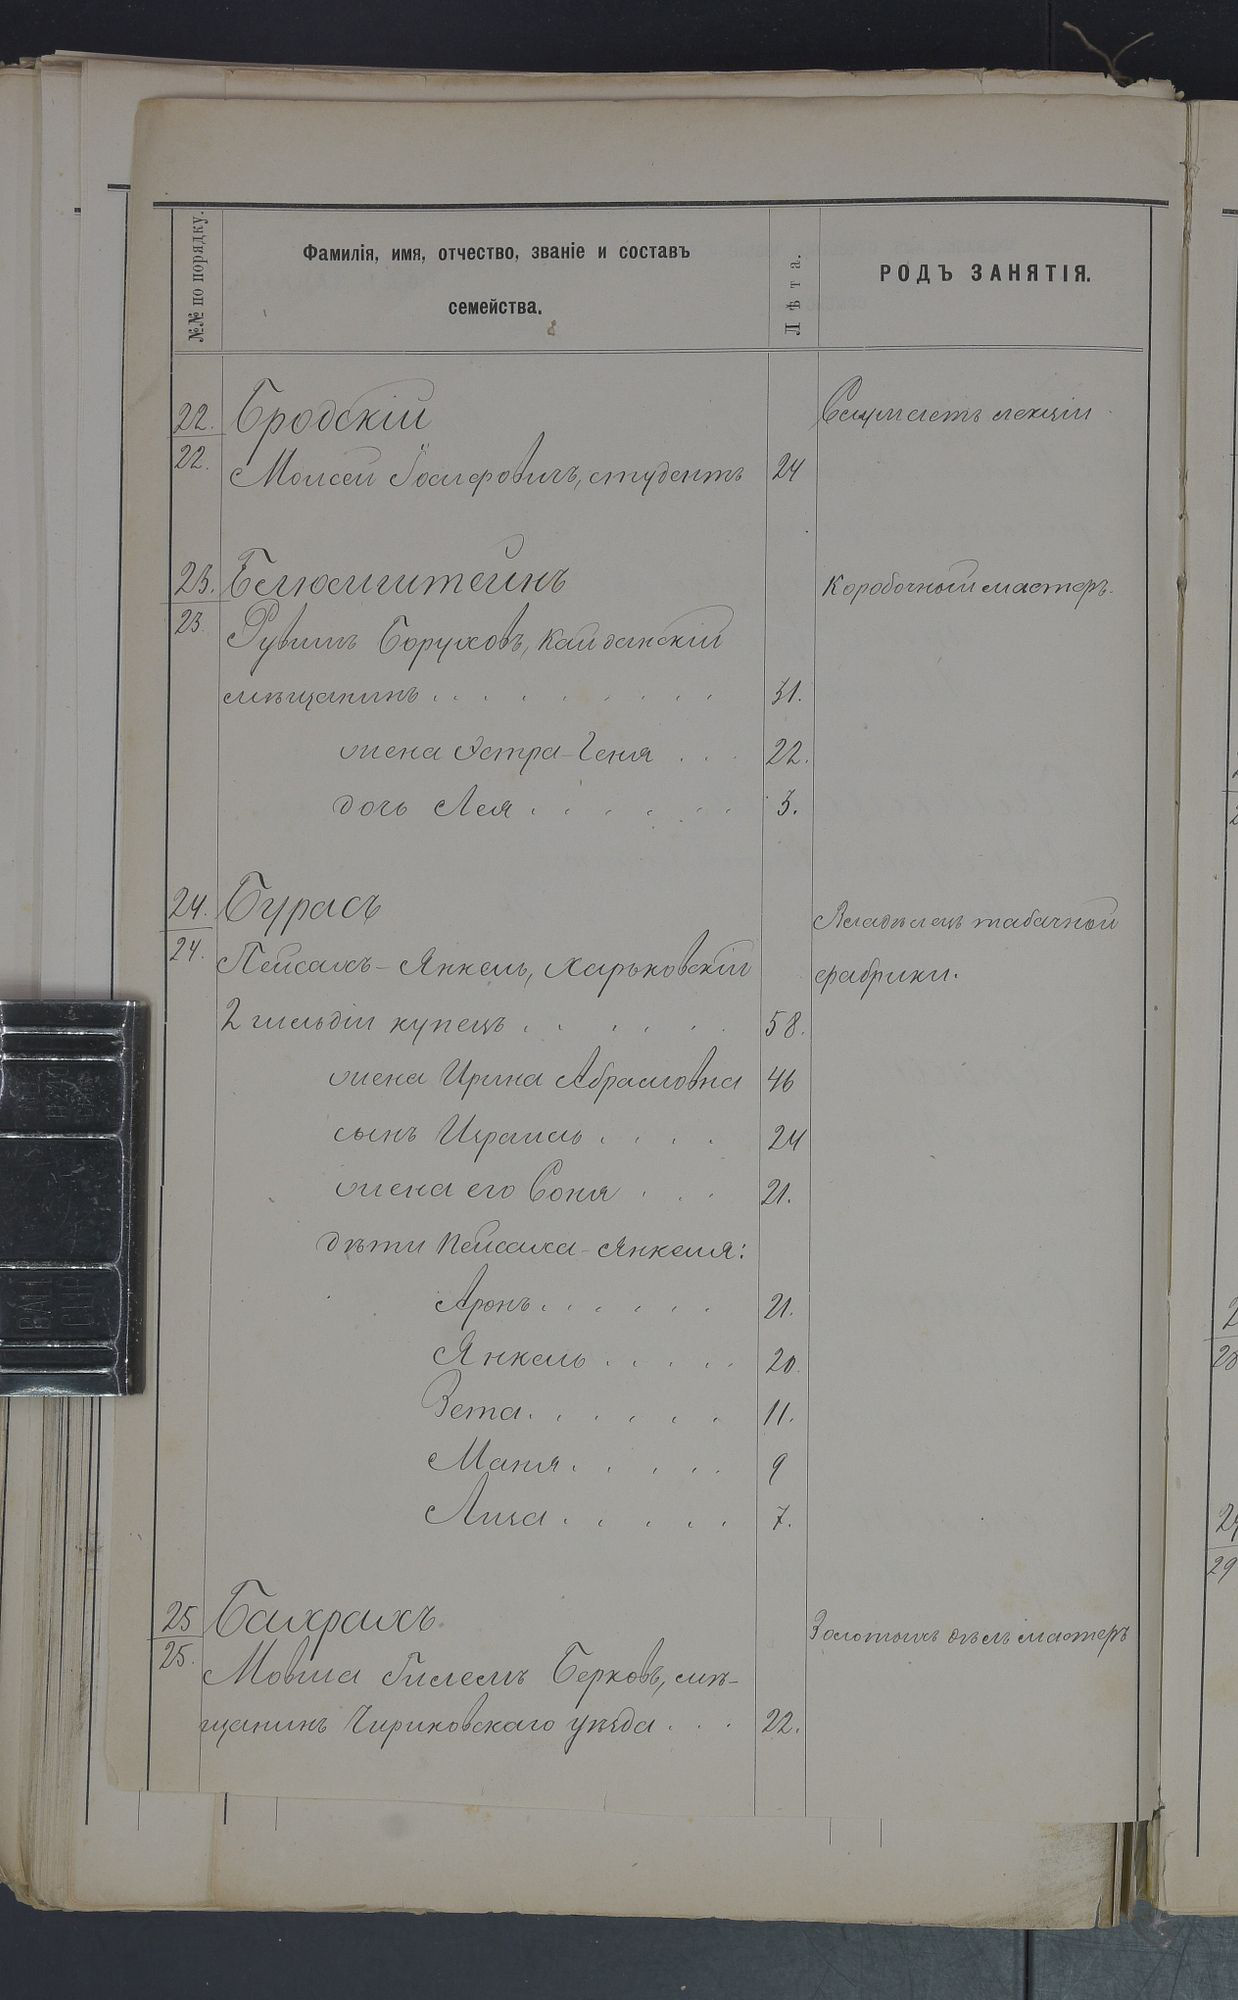 №№ по порядку.
Фамилія, имя, отчество, званіе и составъ
семейства.
Лѣта.
РОДЪ ЗАНЯТІЯ.
22. Бродскій Слушаетъ лекціи
22. Моисей Іосифовичъ, студентъ 24
23. Блюмштейнъ Коробочный мастеръ.
23. Рувимъ Боруховъ, Кайданскій
мѣщанинъ . . . . . . . . . 31.
жена Эстра-Геня . . . 22.
дочь Лея . . . . . . 3.
24. Бурасъ Владѣлецъ табачной
24. Пейсахъ-Янкель, Харьковскій фабрики.
2 гильдіи купецъ . . . . . . 58.
жена Ирина Абрамовна 46
сынъ Израиль . . . . 24
жена его Соня . . . 21.
дѣти Пейсаха-Янкеля:
Аронъ . . . . . . 21.
Янкель . . . . . 20.
Зета . . . . . . 11.
Маня . . . . . 9
Лиза . . . . . 7.
25 Бахрахъ. Золотыхъ дѣлъ мастеръ
25. Мовша Гилемъ Берковъ, мѣ-
щанинъ Чириковскаго уѣзда . . . 22.